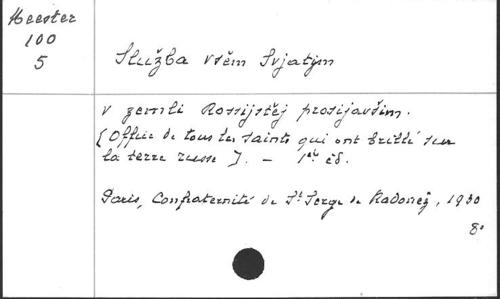 Meester
100
5
Služba vsěm Svjatym
v zemli Rossijstěj prosijavšim.
[Office de tous les saints qui ont brillé sur
la terre russe]. - 1re éd.
Paris, Confraternité de St Serge de Radonež, 1930
8°